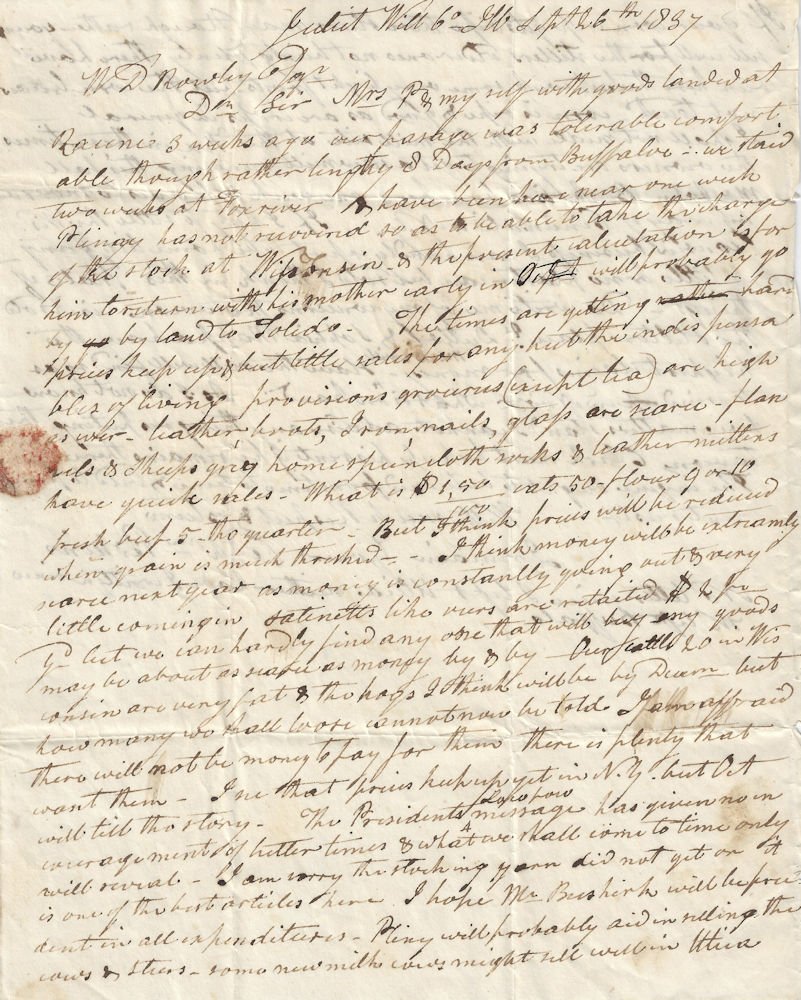 Juliet Will Co Ills Sept 26th 1837
W D Rowley Esqr
Dear Sir Mrs P & my self with goods landed at
Racine 3 weeks ago our passage was tolerable comfort
able though rather lengthy 8 Days from Buffaloe - we staid
two weeks at Foxriver & have been here near one week
Pliny has not recovered so as to be able to take the charge
of the stock at Wisconsin & the present calculation is for
him to return with his mother early in Oct will probably go
by by land to Toledo - The times are getting rather hard
prices keep up & but little sales for any but the indispensa
bles of living provisions groceries (except tea) are high
as ever - leather, boots, Iron, nails, glass are scarce - flan
nels & Sheeps grey homespun cloth socks & leather mittens
have quick sales - Wheat is $1,50 oats 50 - flour 9 or 10
fresh beef 5 - tho quarter - But I think prices will be reduced
when grain is much threshed - - I think money will be extreamly
scarce next year as money is constantly going out & very
little coming in satinetts like ours are retailed $ 2 pr
yd but we can hardly find any one that will buy any goods
may be about as scarce as money by & by - Our cattle 20 in Wis
consin are very fat & the hogs I think will be by Decem - but
how many we shall loose cannot now be told I am affraid
there will not be money to pay for them there is plenty that
want them - I see that prices keep up yet in N.Y. but Oct
will tell the story - The Presidents message has given no in
couragement of better times & what we shall come to time only
will reveal - I am sorry the stocking yarn did not get on it
is one of the best articles here I hope Mr Buskirk will be pru
dent in all expenditures - Pliny will probably aid in selling the
cows & steers - some new milk cows might sell well in Utica